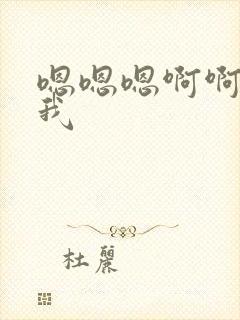 嗯嗯嗯啊啊
我
杜麗